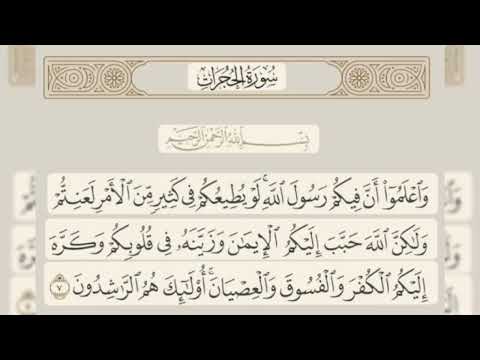 سُورَةُ الحُجُرَاتِ
بِسْمِ اللَّهِ الرَّحْمَٰنِ الرَّحِيمِ
وَاعْلَمُوا أَنَّ فِيكُمْ رَسُولَ اللَّهِ ۚ لَوْ يُطِيعُكُمْ فِي كَثِيرٍ مِّنَ الْأَمْرِ لَعَنِتُّمْ
وَلَٰكِنَّ اللَّهَ حَبَّبَ إِلَيْكُمُ الْإِيمَٰنَ وَزَيَّنَهُۥ فِي قُلُوبِكُمْ وَكَرَّهَ
إِلَيْكُمُ الْكُفْرَ وَالْفُسُوقَ وَالْعِصْيَانَ ۚ أُوْلَٰٓئِكَ هُمُ الرَّٰشِدُونَ ٧